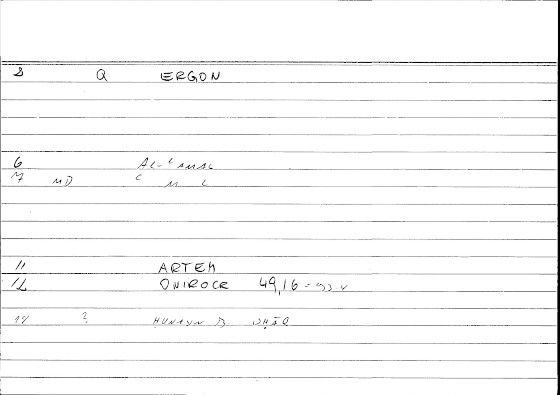 2 Q ERGON
6 AL-ʿAMAL
7 MD ʿ M L
11 ARTEM
12 ONIROCR 49,16
14 ? ḤUNAYN B